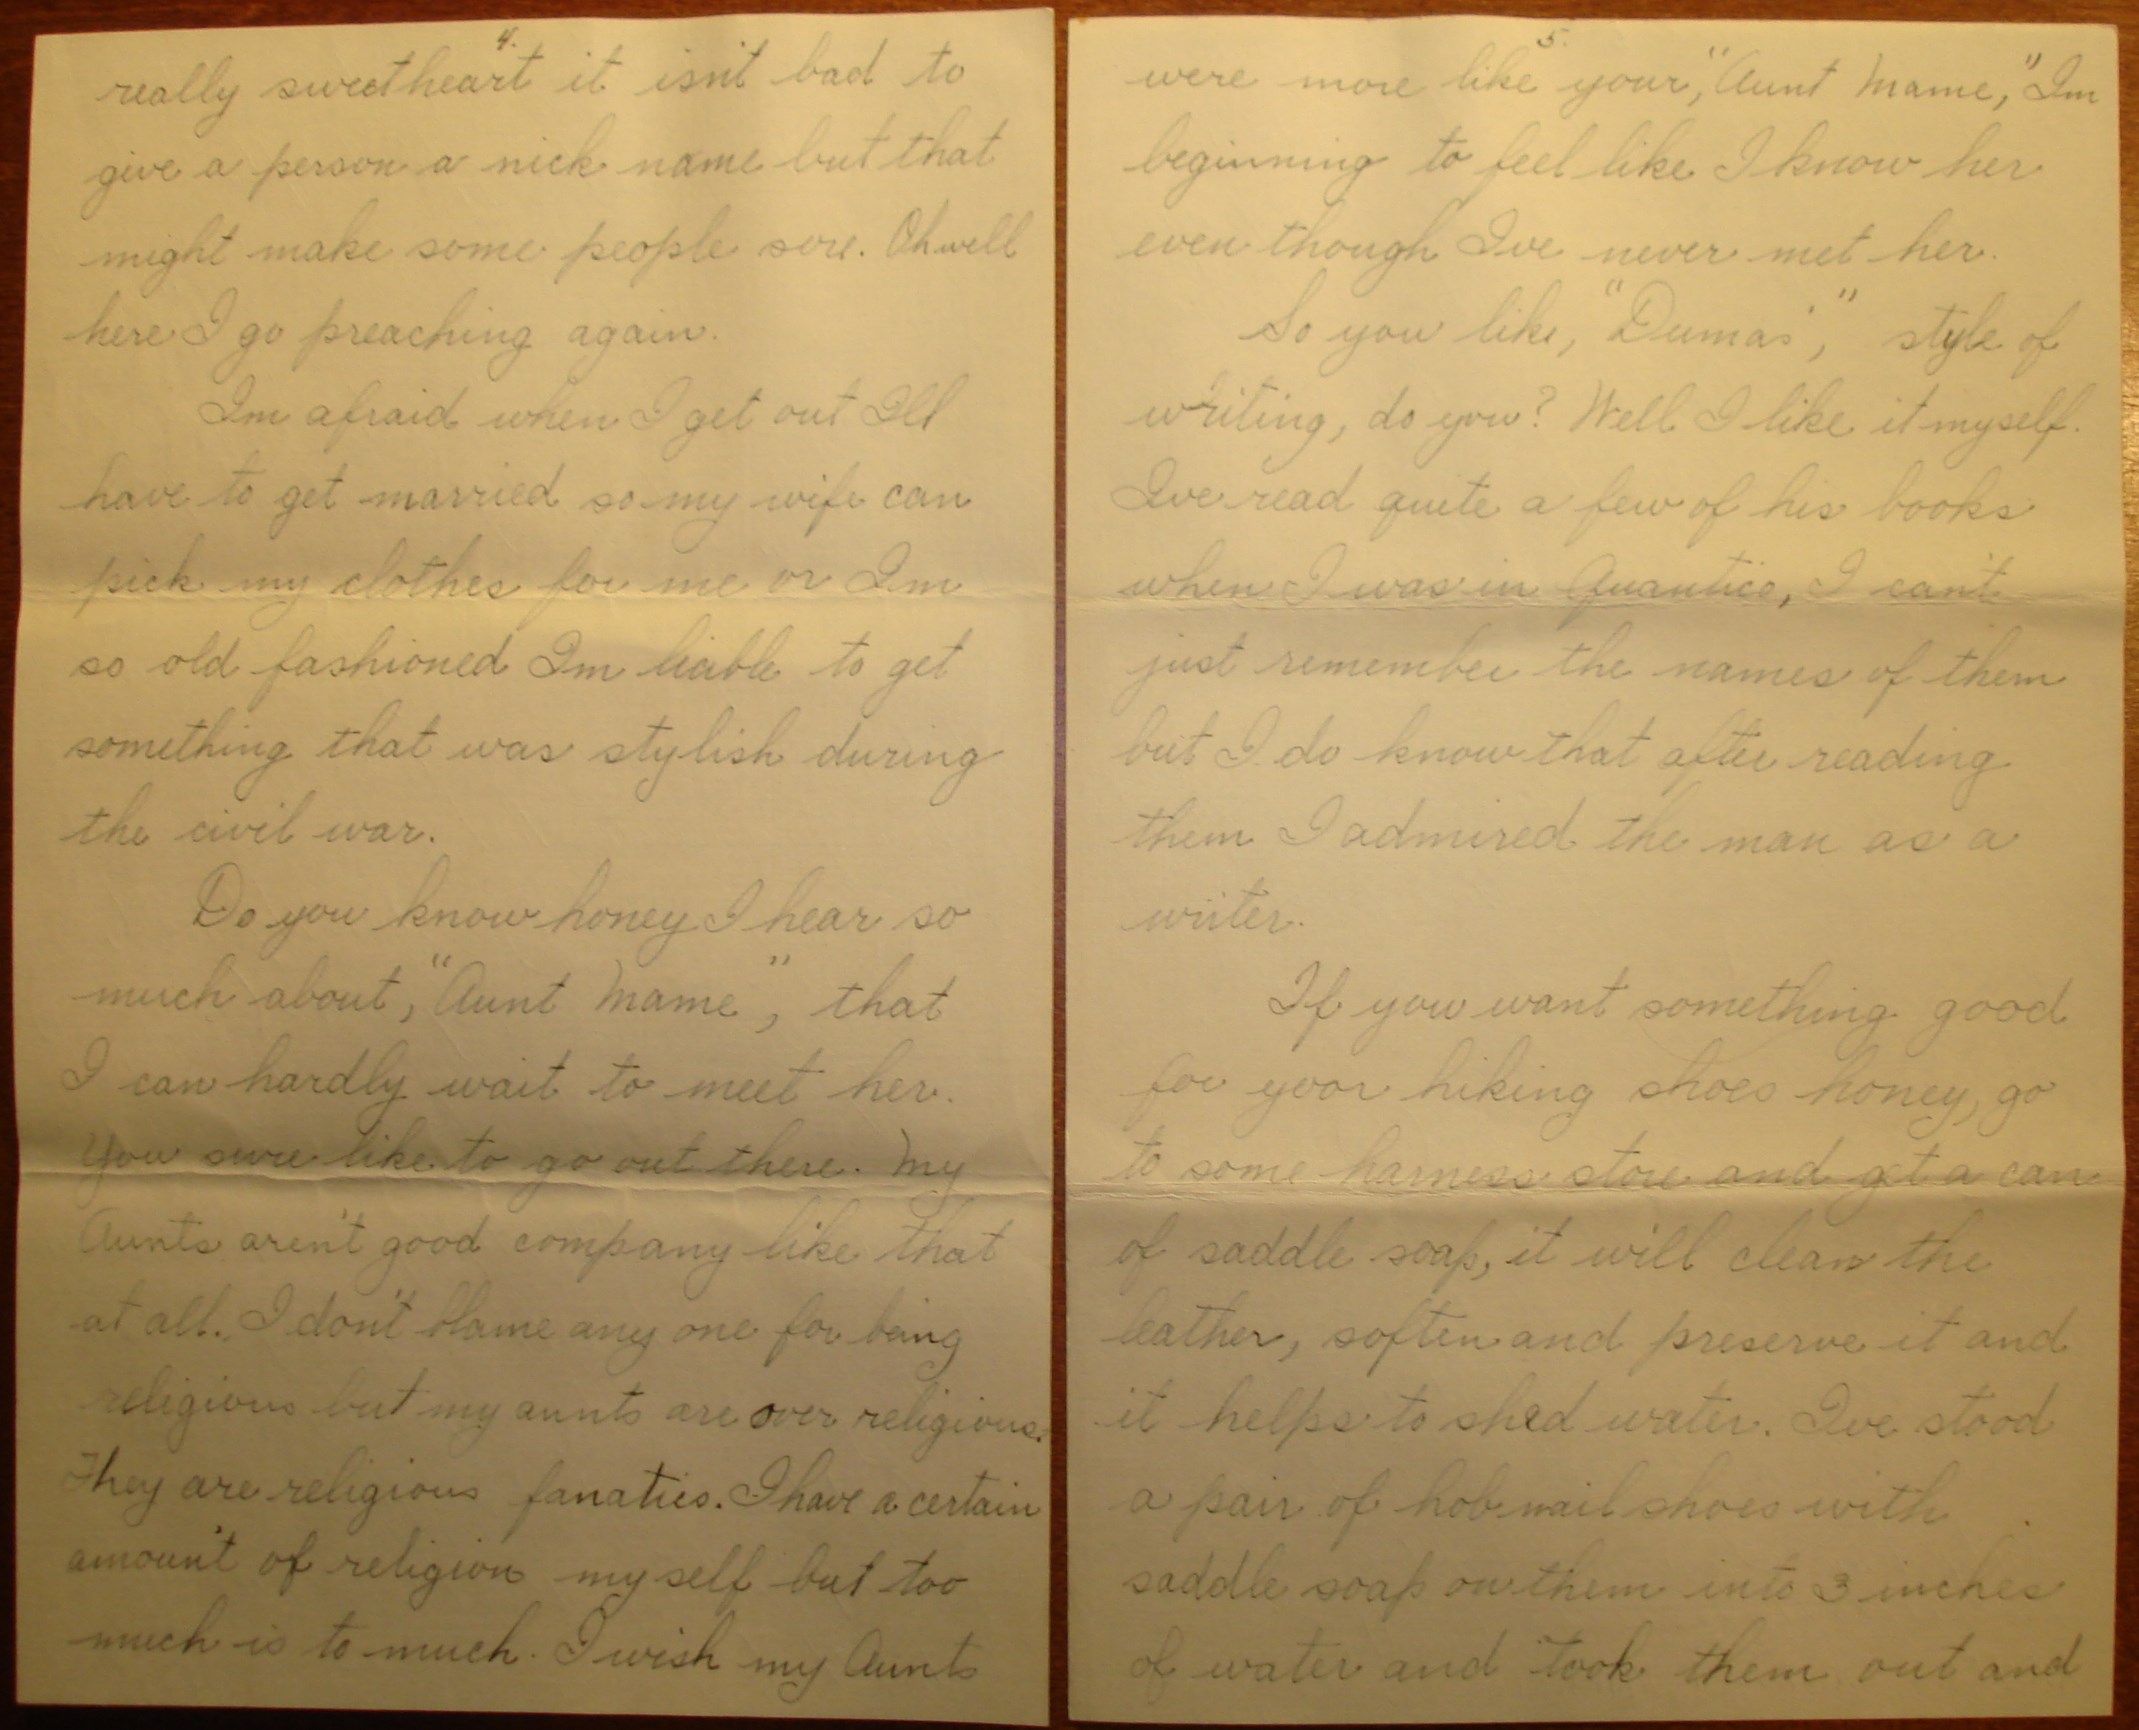 4.
really sweetheart it isn't bad to
give a person a nick name but that
might make some people sore. Oh well
here I go preaching again.
Im afraid when I get out Ill
have to get married so my wife can
pick my clothes for me or Im
so old fashioned Im liable to get
something that was stylish during
the civil war.
Do you know honey I hear so
much about, "Aunt Mame", that
I can hardly wait to meet her.
You sure like to go out there. My
Aunts aren't good company like that
at all. I don't blame any one for being
religious but my aunts are over religious.
They are religious fanatics. I have a certain
amount of religion myself but too
much is to much. I wish my Aunts
5.
were more like your, "Aunt Mame," Im
beginning to feel like I know her
even though Ive never met her.
So you like, "Dumas'," style of
writing, do you? Well I like it myself.
Ive read quite a few of his books
when I was in Quantico, I can't
just remember the names of them
but I do know that after reading
them I admired the man as a
writer.
If you want something good
for your hiking shoes honey, go
to some harness store and get a can
of saddle soap, it will clean the
leather, soften and preserve it and
it helps to shed water. Ive stood
a pair of hob nail shoes with
saddle soap on them into 3 inches
of water and took them out and